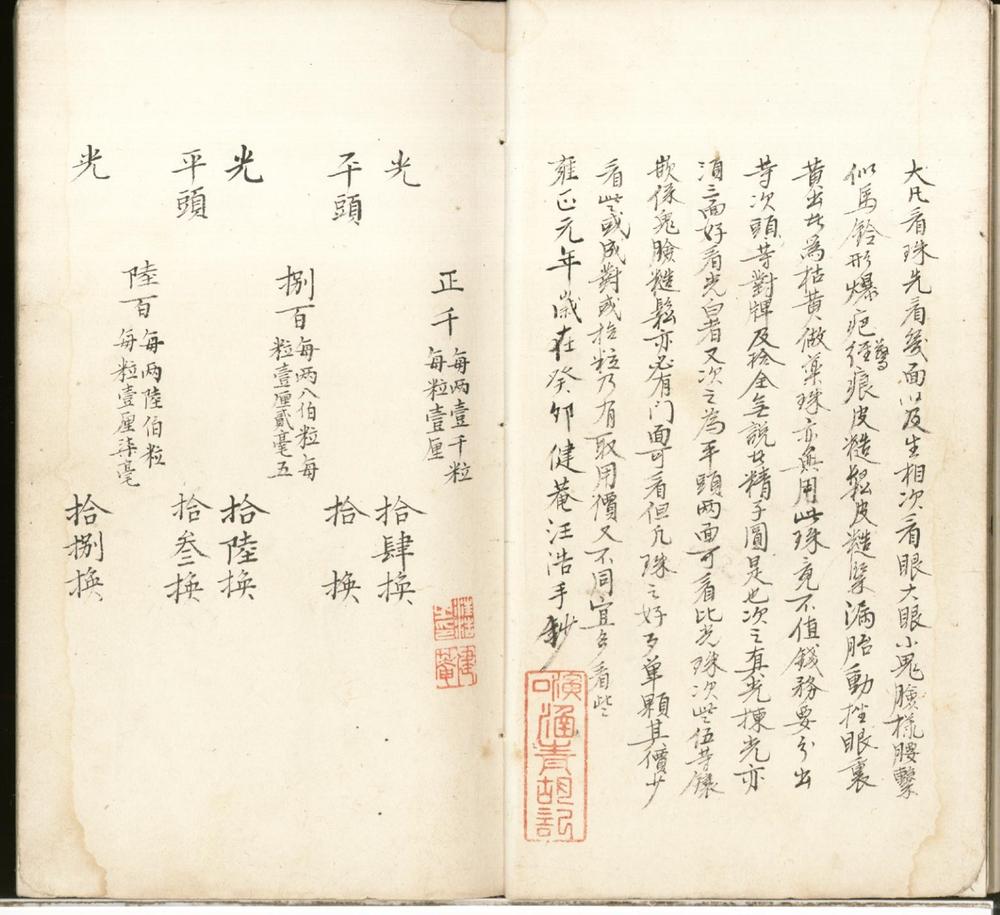 大凡看珠先看幾面以及生相次看眼大眼小鬼臉樣腰𩋾
似馬鈴形爆疤經痕皮糙鬆皮糙緊漏胎動挫眼裏
黄出者為枯黄做藥珠亦無用此珠竟不值錢務要分出
等次頭等對牌及拾全無説者精子圓是也次之真光揀光亦
須三面好看光白者又次之為平頭两面可看比光珠次些伍等鑲
嵌條鬼臉糙鬆亦必有门面可看但凡珠之好歹單顆其價少
看些或成對或拾粒乃有取用價又不同宜多看些
雍正元年歲在癸卯健菴汪浩手鈔
正千 每两壹千粒
每粒壹厘
光 拾肆换
平頭 拾换
捌百 每两八伯粒每
粒壹厘贰毫五
光 拾陸换
平頭 拾叁换
陸百 每两陸伯粒
每粒壹厘柒毫
光 拾捌换